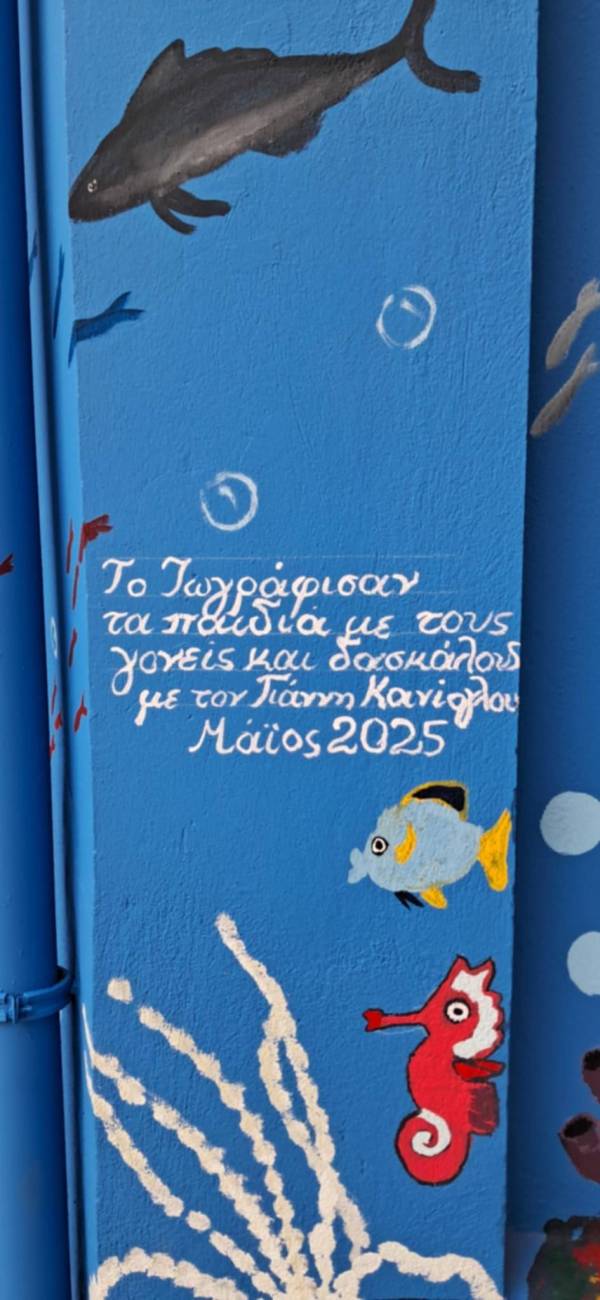 Το ζωγράφισαν
τα παιδιά με τους
γονείς και δασκάλους
με τον Γιάννη Κανίογλου
Μάϊος 2025